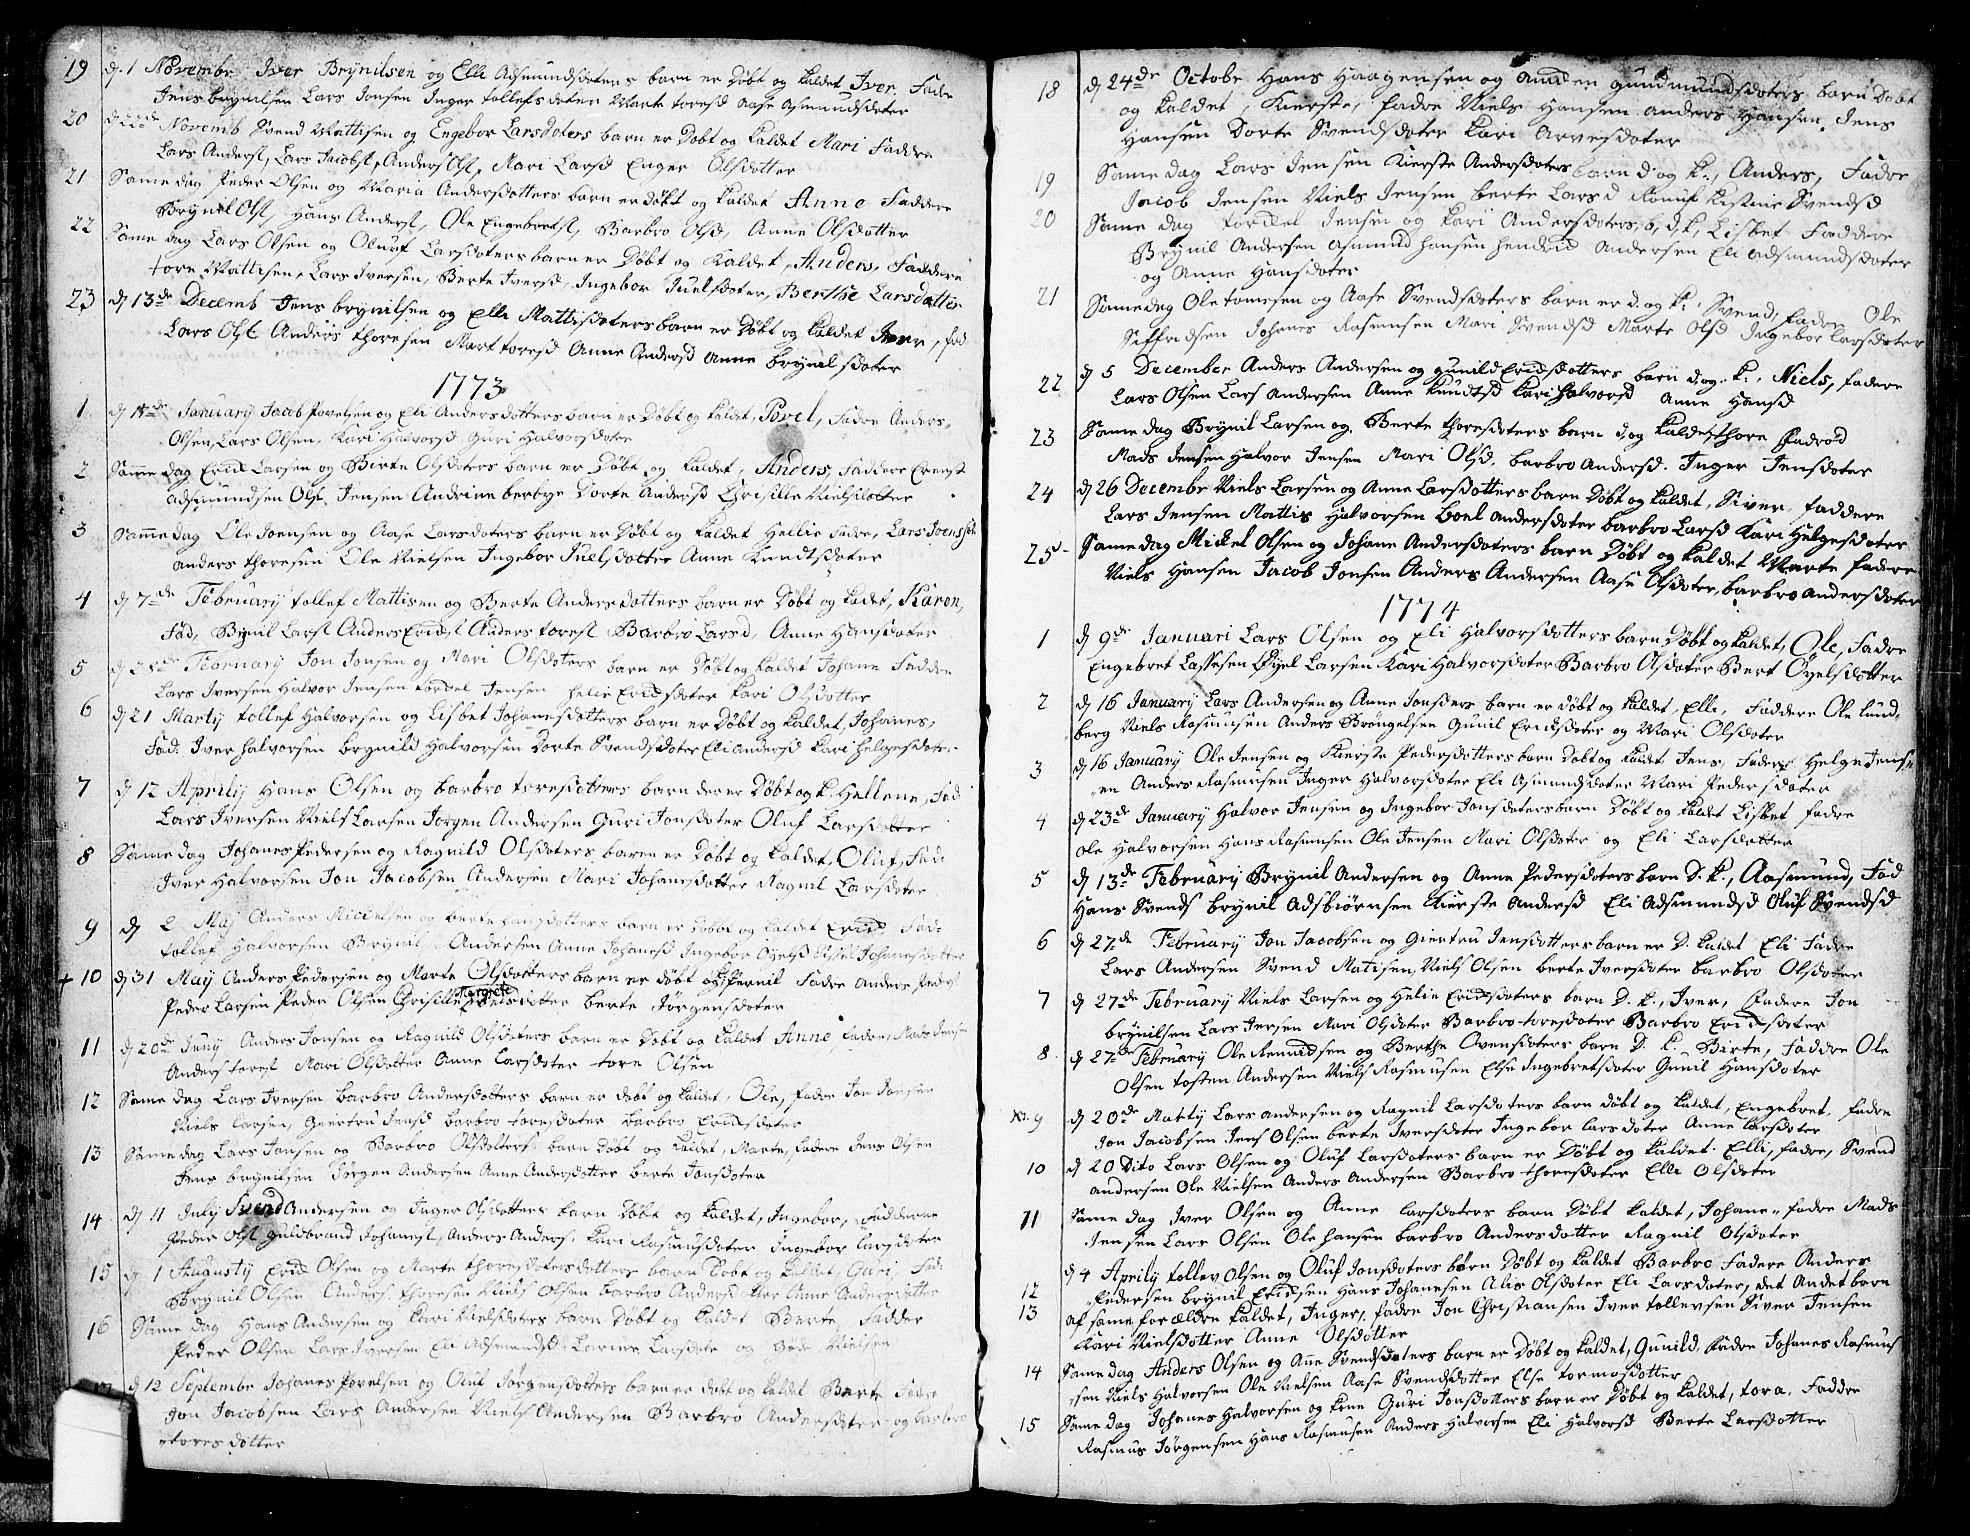 19 d. 1 Novembr Iver Brynilsen og Elli Adsmundsdoters barn er Døbt og kaldet Iver. Fadr
Jens brynilsen Lars Jonsen Inger tollefsdoter Marte toresd Aase Asmundsdoter
20 d 22de Novemb Svend Mattisen og Engebor Larsdoters barn er Døbt og kaldet Mari Faddre
Lars Anderst, Lars Jacobst, Anders Olst, Mari Larsd Enger Olsdotter
21 Same dag Peder Olsen og Maria Andersdotters barn er døbt og kaldet Anne Faddere
Brynil Olst, Hans Anderst, Ole Engebretst, Barbro Olsd, Anne Olsdotter
22 Same dag Lars Olsen og Oluuf Larsdoters barn er Døbt og Kaldet, Anders, Faddere
tore Mattisen, Lars Iversen, Berte Iversd, Ingebor Juelsdoter, Berthe Larsdotter
23 d 13de Decemb Jens brynilsen og Elli Mattisdoters barn er Døbt og kaldet Iver, fad
Lars Olst Anders thoresen Mart toresd Anne Andersd Anne brynilsdoter
1773
1 d 1de January Jacob Povelsen og Eli Andersdotters barn er Døbt og kaldet, Povel, Fadre Anders
Olsen, Lars Olsen, Kari Halvorsd Guri Halvorsdoter
2 Same dag Erick Larsen og Birte Olsdoters barn er Døbt og kaldet, Anders, Faddere Erenst
Adsmundsen Olst Jensen Andrine berbye Dorte Andersd Chrisille Nielsdotter
3 Samme dag Ole Joensen og Aase Larsdoters barn er Døbt og kaldet Hellie Fadre, Lars Joensen
Anders thoresen Ole Nielsen Ingebor Juelsdotter Anne Knudtsdoter
4 d 7de February tollef Mattisen og Berte Andersdotters barn er Døbt og kadet, Karen,
Fad, Brynil Larst Anders Ericksl Anders torest Barbro Larsd, Anne Hansdoter
5 d 28de February Jon Jonsen og Mari Olsdoters barn er Døbt og kaldet Johane Faddre
Lars Iversen Halvor Jensen tordel Jensen helie Ericksdoter kari Olsdotter
6 d 21 Marty tollef Halvorsen og Lisbet Johanesdotters barn er Døbt og kaldet, Johanes,
Fad: Iver halvorsen brynild Halvorsen Dorte Svendsdoter Eli Andersd kari helgesdoter
7 d 12 Aprily Hans Olsen og barbro toresdotters barn der er Døbt og k. Hellene, Fad
Lars Iversen Niels Larsen Jørgen Andersen Guri Jonsdoter Oluf Larsdotter
8 Same dag Johanes Pedersen og Ragnild Olsdoters barn er Døbt og kaldet, Oluf, Fad:
Iver Halvorsen Jon Jacobsen Andersen Mari Johansdotter Ragnil Larsdoter
9 d 2 Maj Anders Mickelsen og berte hansdotters barn er Døbt og kaldet Erick Fad:
tollef Halvorsen Brynil Andersen Anne Johanesd Ingebor Øyelsd Sissel Johanesdotter
+ 10 d 31 May Anders Pedersen og Marte Olsdotters barn er døbt og k Pernil Fadre Anders Pederst
Peder Larsen Peder Olsen Chrisille Margrete Nielsdotter berte Jørgensdoter
11 d 20de Juny Anders Jonsen og Ragnild Olsdoters barn er Døbt og kaldet Anne Fadre, Mads Jensen
Anders torest Mari Olsdotter Anne Larsdoter tore Olsen
12 Same dag Lars Iversen barbro Andersdotters barn er debt og kaldet, Ole, fadre Jon Jonsen
Niels Larsen, Giertru Jensd barbro toresdoter barbro Ericksdoter
13 Same dag Lars Jonsen og Barbro Olsdotters barn Døbt og kaldet, Marte, fadere Jens Olsen
Jens brynilsen Jørgen Andersen Anne Andersdotter berte Jonsdoter
14 d 11 July Svend Andersen og Inger Olsdotters barn Døbt og kaldet, Ingebor, Fadderne
Peder Olst guldbrand Johanest, Anders Anders, kari Rasmusdoter Ingebor larsdoter
15 d 1 Augusty Erick Olsen og Marte thoresdotersdotters barn Døbt og kaldet, Guri, Fad
Brynil Olsen Anders thoresen Niels Olsen barbro Andersdotter Anne Andersdotter
16 Same dag Hans Andersen og kari Nielsdoters barn Døbt og kaldet Berte, Fadder
Peder Olsen Lars Iversen Eli Adsmundsd, Larine Larsdote og Gøde Nielsen
d 12 Septembr Johanes Povelsen og Oluf Jørgensdotters barn er debt og kaldet Berte Fadre
Jon Jacobsen Lars Andersen Niels Andersen Barbro Andersdoter og barbro
toresdotter
18 d 24de Octobr Hans Haagensen og gudmundsdoters barn Døbt
og kaldet, Kierste, fadre Niels Hansen Anders Hansen, Jens
Hansen Dorte Svendsdoter kari Arvesdoter
19 Same dag Lars Jensen Kierste Andersdoters barn d. og k., Anders, Fadre
Jacob Jensen Niels Jensen berte Larsd Kistine Svendsd
20 Same dag tordel Jensen og kari Andersdoters, b, d, k, Lisbet Faddere
Brynil Andersen Asmund hansen hendrick Andersen Eli Adsmundsdoter
og Anne Hansdoter
21 Same dag Ole tomesen og Aase Svendsdoters barn er d. og k. Svend, Fadre Ole
Siffredsen Johanes Rasmusen Mari Svendsd Marte Olsd Ingebor Larsdoter
22 d 5 December Anders Andersen og gunild Ericksdotters barn d. og k., Niels, fadere
Lars Olsen Lars Andersen Anne knudtsd kari Halvorsd Anne Hansd
23 Same dag Brynil Larsen og Berte thoresdoters barn d. og kaldet thore Fadrød
Mads Jensen Halvor Jensen Mari Olsd, barbro Andersd. Inger Jensdoter
24 d 26 Decembr Niels Larsen og Anne Larsdotters barn Døbt og kaldet, Siver, faddere
Lars Jensen Mattis Halvorsen boel Andersdoter barbro Larsd Kari Helgesdoter
25 Same dag Mickel Olsen og Johane Andersdoters barn Døbt og kaldet Marte fadere
Niels Hansen Jacob Jonsen Anders Andersen Aase Olsdoter, barbro Andersdoter
1774
1 d 9de Januari Lars Olsen og Eli Halvorsdotters barn Døbt og kaldet, Ole, Fadre
Engebret Lassesen Øyel Larsen Kari Halvorsdoter Barbro Olsdoter Bert Øyelsdotter
2 d 16 January Lars Andersen og Anne Jonsders barn er døbt og kaldet, Elli, Faddere Ole Lund
berg Niels Rasmusen Anders Brøngelsen Gunil Ericksdoter og Mari Olsdoter
3 d 16 January Ole Jensen og Kierste Pedersdotters barn Døbt og kaldet Jens, Fadere Helge Jens
en Anders Rasmusen Inger Halvorsdoter Eli Asmundsdoter Mari Pedersdoter
4 d 23de January Halvor Jensen og Ingebor Jonsdoters barn Døbt og kaldet Lisbet fadre
Ole Halvorsen Hans Rasmusen Ole Jensen Mari Olsdoter og Eli Larsdotter
5 d 13de February Brynil Andersen og Anne Pedersdoters barn D. k., Aasmund, Fad
Hans Svends brynil Adsbiørnsen Kierste Andersd Eli Adsmundsd Oluf Svendsd
6 d 27de February Jon Jacobsen og Giertru Jensdotters barn er D. kaldet Eli Fadre
Lars Andersen Svend Matisen, Niels Olsen berte Iversdoter barbro Olsdoter
7 d 27de February Niels Larsen og Helie Ericksdoters barn D. k., Iver, Fadere Jon
brynilsen Lars Iersen Mari Olsdoter Barbro toresdoter Barbro Ericksdoter
8 d 27de February Ole Remudsen og Berthe Ovensdoters barn D. k. Birte, Faddre Ole
Olsen tosten Andersen Niels Rasmusen Else Ingebretsdoter Gunil Hansdoter
9 d 20de Marty Lars Andersen og Ragnil Larsdoters barn døbt og kaldet, Engebret, fadre
Jon Jacobsen Jens Olsen berte Iversdoter Ingebor larsdoter Anne larsdoter
10 d 20 Dito Lars Olsen og Oluf Larsdoters barn er Døbt og kaldet Elli, fadre, Svend
Andersen Ole Nielsen Anders Andersen Barbro thoresdoter Elli Olsdoter
11 Same dag Iver Olsen og Anne Larsdoters barn Døbt kaldet, Johane, fadre Mads
Jensen Lars Olsen Ole hansen barbro Andersdotter Ragnil Olsdoter
12 d 4 Aprily tollev Olsen og Oluf Jonsdoters børn Døbt og kaldet Barbro Fadere Anders
Pedersen brynil Ericksen Hans Johanesen Alis Olsdoter Eli Larsdoter, det Andet barn
13 af same forældre kaldet, Inger, fadre Jon Christiansen Iver tollevsen Siver Jensen
Kari Nielsdotter Anne Olsdotter
14 Same dag Anders Olsen og Ane Svendsdoters barn er Døbt og kaldet, Gunild, Fadre Johanes Rasmus
sen Niels Halvorsen Ole Nielsen Aase Svendsdotter Else tormosdotter
15 Same dag Johanes Halvorsen og kone Guri Jonsdotters barn er Døbt og kaldet, tora, Faddre
Rasmus Jørgensen Hans Rasmusen Anders Halvorsen Eli Halvorsd Berte Larsdotter